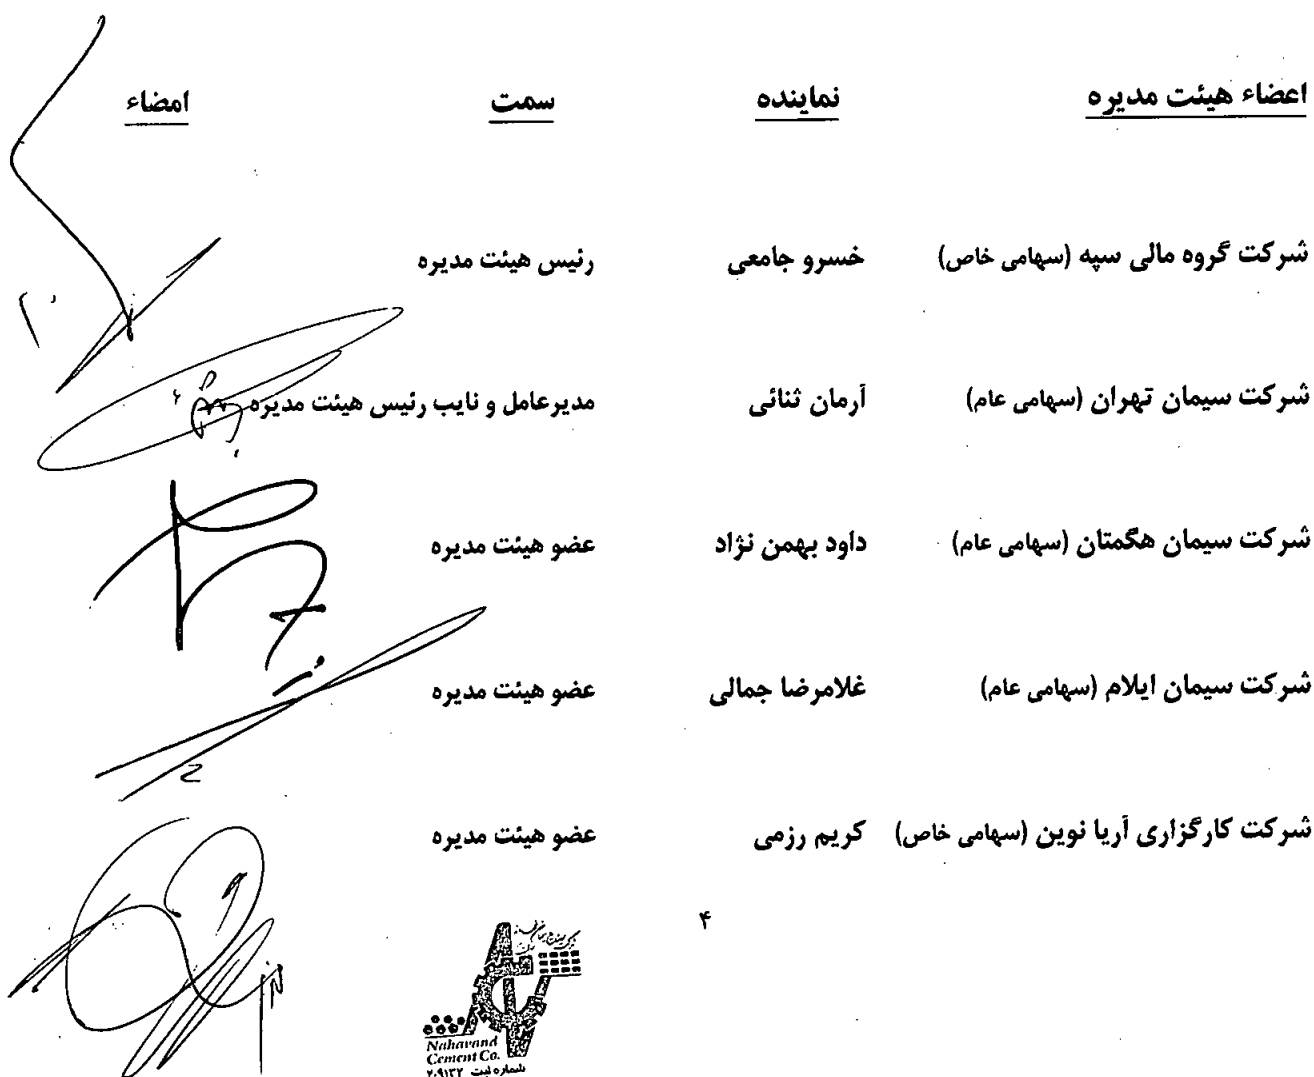 اعضاء هیئت مدیره نماینده سمت امضاء
شرکت گروه مالی سپه (سهامی خاص) خسرو جامعی رئیس هیئت مدیره
شرکت سیمان تهران (سهامی عام) آرمان ثنائی مدیرعامل و نایب رئیس هیئت مدیره
شرکت سیمان هگمتان (سهامی عام) داود بهمن نژاد عضو هیئت مدیره
شرکت سیمان ایلام (سهامی عام) غلامرضا جمالی عضو هیئت مدیره
شرکت کارگزاری آریا نوین (سهامی خاص) کریم رزمی عضو هیئت مدیره
۴
Nahavand
Cement Co.
شماره ثبت ۲۰۹۱۳۲